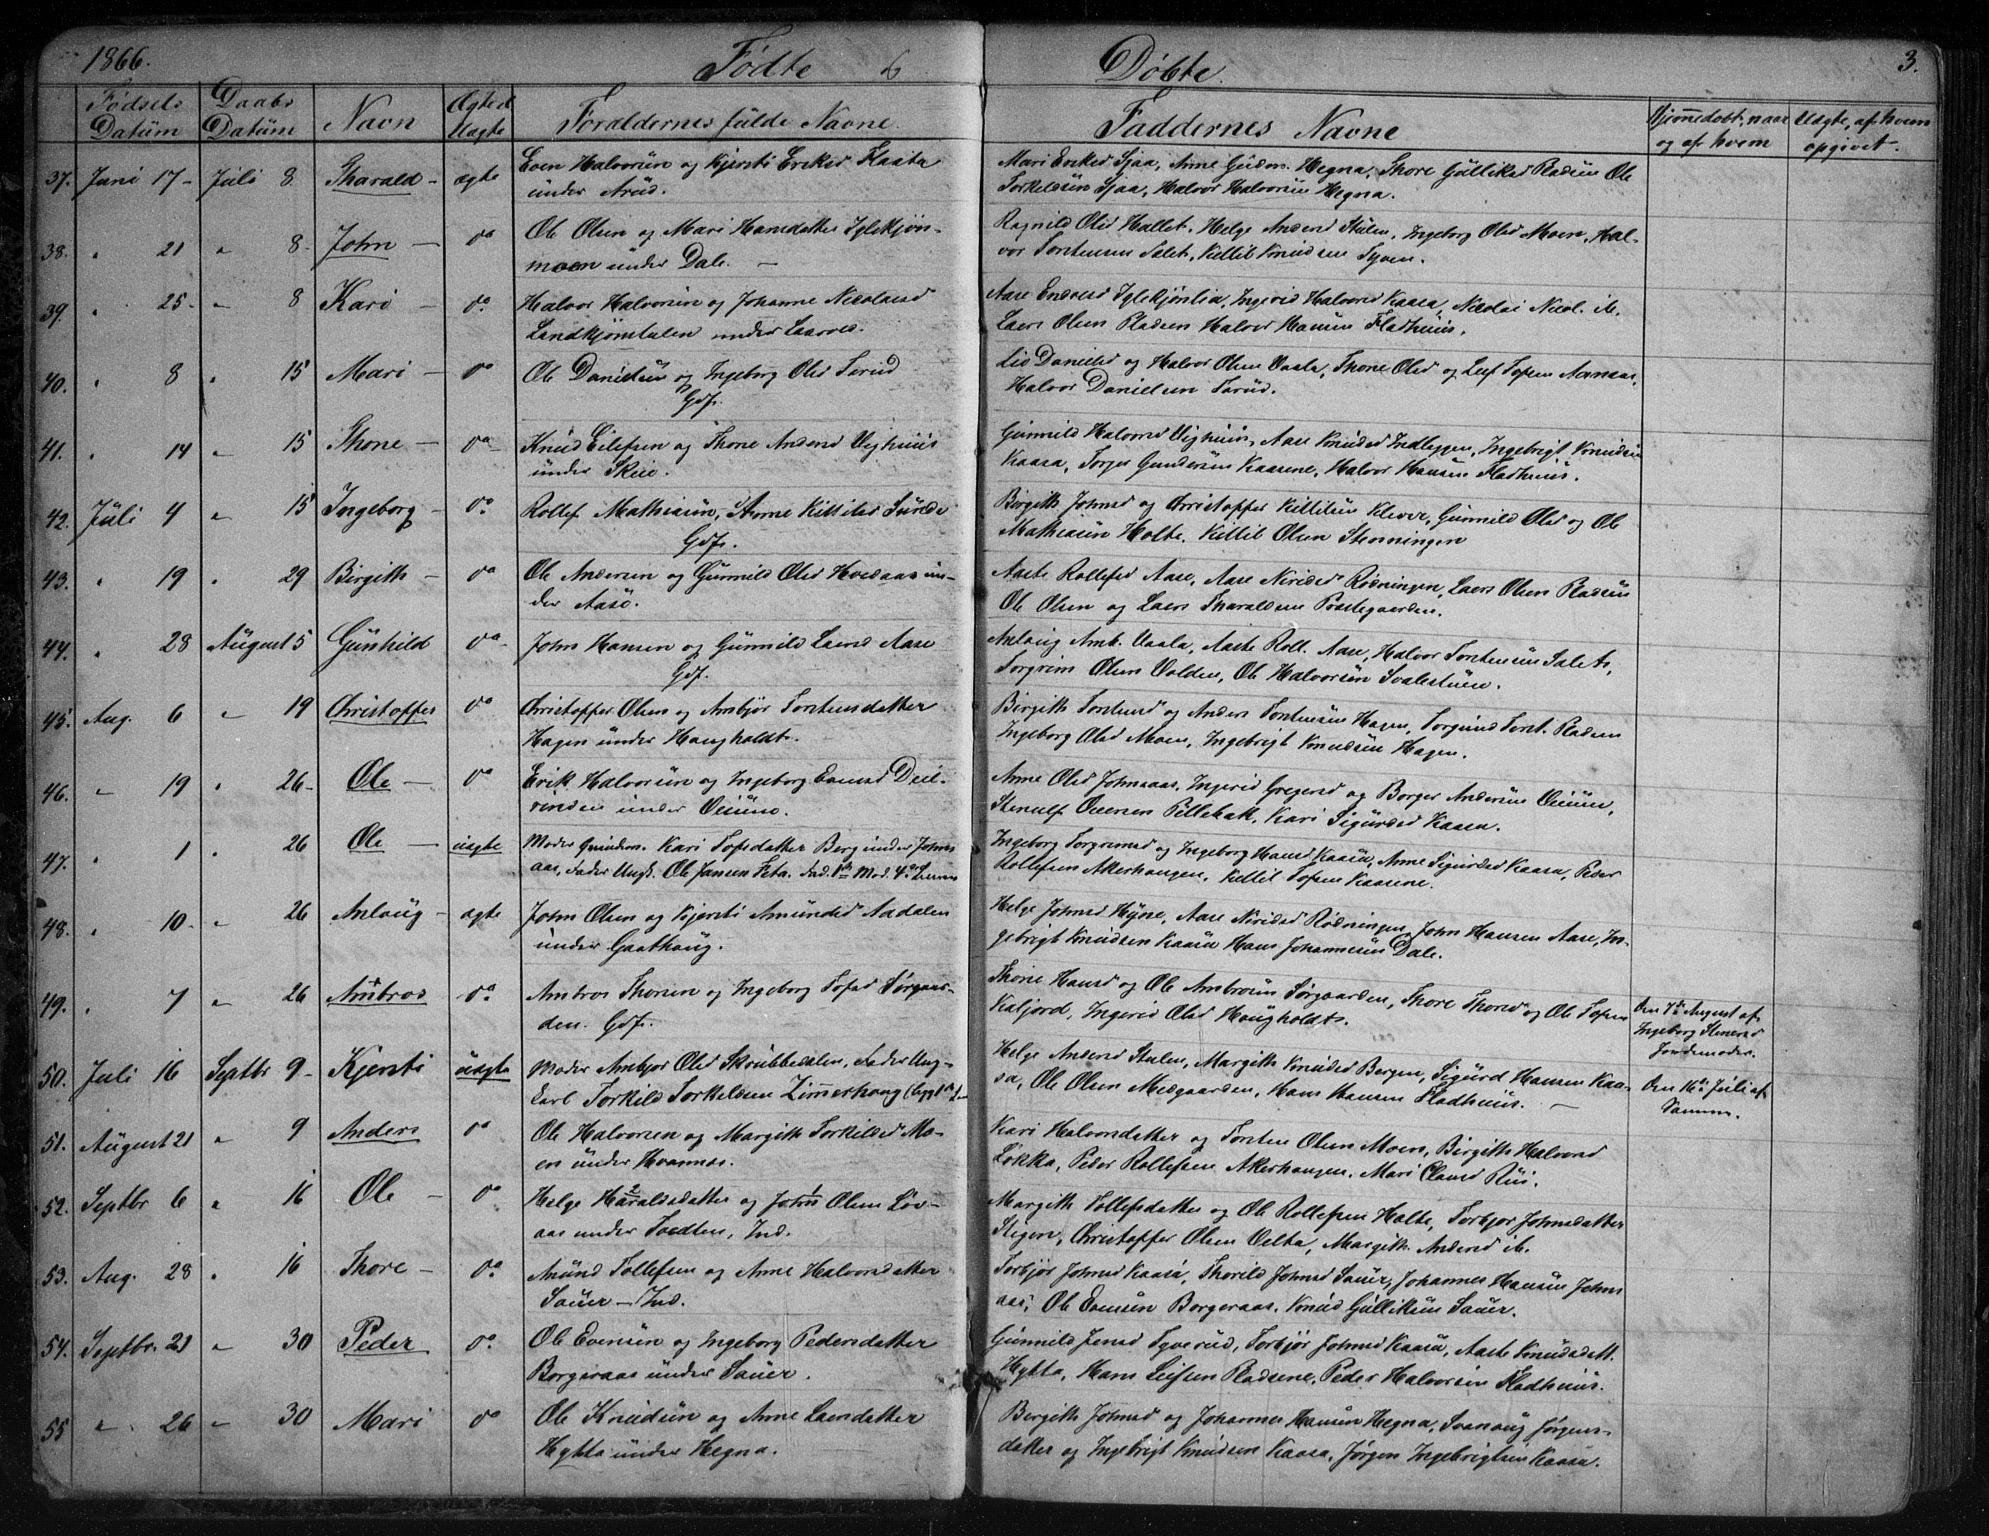 1866.
Fødte & Døbte.
3.
Fødsels Datum
Daabs Datum
Navn
Ægte el. Uægte
Forældrenes fulde Navne
Faddernes Navne
Hjemmedøbt, naar og af hvem
Uægte, af hvem opgivet.
37. Juni 17 - Juli 8. Tharald - ægte
Even Halvorsen og Kjersti Eriksd Flaata
under Arud.
Mari Eriksd Sjaa, Anne Gudm. Hegna, Thore Gulliksd Pladsen Ole
Torkildsen Sjaa, Halvor Halvorsen Hegna.
38. " 21 " 8. John - do
Ole Olsen og Mari Hansdatter Iglekjøn-
moen under Dale. -
Ragnild Olsd Hallet, Helge Andersd Stulen, Ingeborg Olsd Moen, Hal-
vor Torstensen Salet, Kittil Knudsen
39. " 25 - " 8 Kari - do.
Halvor Halvorsen og Johanne Nicolaisd
Landkjønsdalen under
Aase Iglekjønlia, Ingerid Halvorsd Kaasa, Nicolai Nicol. ib.
Laers Olsen Pladsen Halvor Hansen Fladhuus.
40. " 8 " 15 Mari - do
Ole Danielsen og Ingeborg Olsd
Gdf.
Liv Danielsd og Halvor Olsen Vaala, Thone Olsd og Leif Tofsen Aanaas,
Halvor Danielsen
41. " 14 " 15 Thone - do
Knud Eilefsen og Thone Andersd Vighuus
under Skee.
Gunnild Halvorsd Vighuus, Aase Knudsd Indleggen, Ingebrigt Knudsen
Kaasa, Torger Gundersen Kaasene, Halvor Hansen Fladhuus.
42. Juli 4 " 15 Ingeborg - do.
Rollef Mathiasen, Anne Kittilsd
Gdf.
Birgith Johnsd og Christoffer Kittilsen Klever, Gunnild Olsd og Ole
Mathiasen Holte, Kittil Olsen Stenningen
43. " 19 " 29 Birgith - do
Ole Andersen og Gunnild Olsd Hvedaas un-
der Aase.
Aaste Rollefsd Aase, Aase Nirisd Rødningen, Laers Olsen Pladsen
Ole Olsen og Laers Tharaldsen Præstegaarden.
44. " 28 August 5 Gunhild do -
John Hansen og Gunnild Laersd Aase
Gdf.
Anlaug Amb. Vaala, Aaste Roll. Aase, Halvor Torstensen Salet,
Torgrim Olsen Volden, Ole Halvorsen Svalestuen.
45. Aug. 6 " 19 Christoffer do
Christoffer Olsen og Ambjør Torstensdatter
Hagen under Haugholdt.
Birgith Torstensd og Anders Torstensen Hagen, Torgund Torst. Pladsen
Ingeborg Olsd Moen, Ingebrigt Knudsen Hagen.
46. " 19 " 26 - Ole - do
Erik Halvorsen og Ingeborg Evensd
under
Anne Olsd Johnsaas, Ingerid Gregersd og Borger Andersen
Stenulf Pillebak, Kari Sigurdsd Kaasa.
47. " 1 " 26 Ole - uægte
Moder Kari Tofsdatter Berg under Johns
aas, Fader Ungk. Ole Jansen
Ingeborg Torgrimsd og Ingeborg Hansd Kaasa, Anne Sigurdsd Kaasa, Peder
Rollefsen Akerhaugen, Kittil Tofsen Kaasene.
48. " 10. " 26 Anlaug - ægte
John Olsen og Kjersti Amundsd Aadalen
under Gaathaug.
Helge Johnsd Hyne, Aase Nirisd Rødningen, John Hansen Aase, In-
gebrigt Knudsen Kaasa Hans Johannesen Dale.
49. " 7 " 26 Ambros do.
Ambros Thorsen og Ingeborg Tofsd Sørgaar-
den. Gdf.
Thone Hansd og Ole Ambrosen Sørgaarden, Thore Thorsd og Ole Tofsen
Kasjord, Ingerid Olsd Haugholdt.
Den 7de August af
Ingeborg Stenersd
Jordemoder.
50. Juli 16 Septbr 9 - Kjersti uægte
Moder Ambjør Olsd Skrubbedalen, Fader Ung-
karl Torkild Torkildsen Zimerhaug
Helge Andersd Stulen, Margith Knudsd Bergen, Sigurd Hansen Kaa-
sa, Ole Olsen Midgaarden, Hans Hansen Fladhuus. -
Den 16de Juli af
Samme.
51. August 21 " 9 Anders do
Ole Halvorsen og Margith Torkilsd Mo-
en under Hvamnas.
Kari Halvorsdatter og Torsten Olsen Moen, Birgith Halvorsd
Løkka, Peder Rollefsen Akerhaugen, Mari Olausd Rui.
52. Septbr 6 " 16 Ole - do
Helge Haraldsdatter og John Olsen Løv-
aas under Tveten, Ind.
Margith Tollefsdatter og Ole Rollefsen Holte, Torbjør Johnsdatter
Stigen, Christoffer Olsen Velta, Margith Andersd ib.
53. Aug. 28 " 16 Thore - do
Amund Tollefsen og Anne Halvorsdatter
Sauer - Ind.
Torbjør Johnsd Kaasa, Thorild Johnsd Sauer, Johannes Hansen Johns
aas, Ole Evensen Borgeraas, Knud Gulliksen Sauer.
54. Septbr. 21 " 30 Peder do.
Ole Evensen og Ingeborg Pedersdatter
Borgeraas under Sauer.
Gunnild Jensd Tyverud, Torbjør Johnsd Kaasa, Aaste Knudsdatt.
Hytta, Hans Leifsen Pladsene, Peder Halvorsen Fladhuus.
55 " 26 " 30 Mari do
Ole Knudsen og Anne Laersdatter
Hytta under Hegna.
Bergith Johnsd og Johannes Hansen Hegna, Svanaug Jørgens-
datter og Ingebrigt Knudsen Kaasa, Jørgen Ingebrigtsen Kaasa.